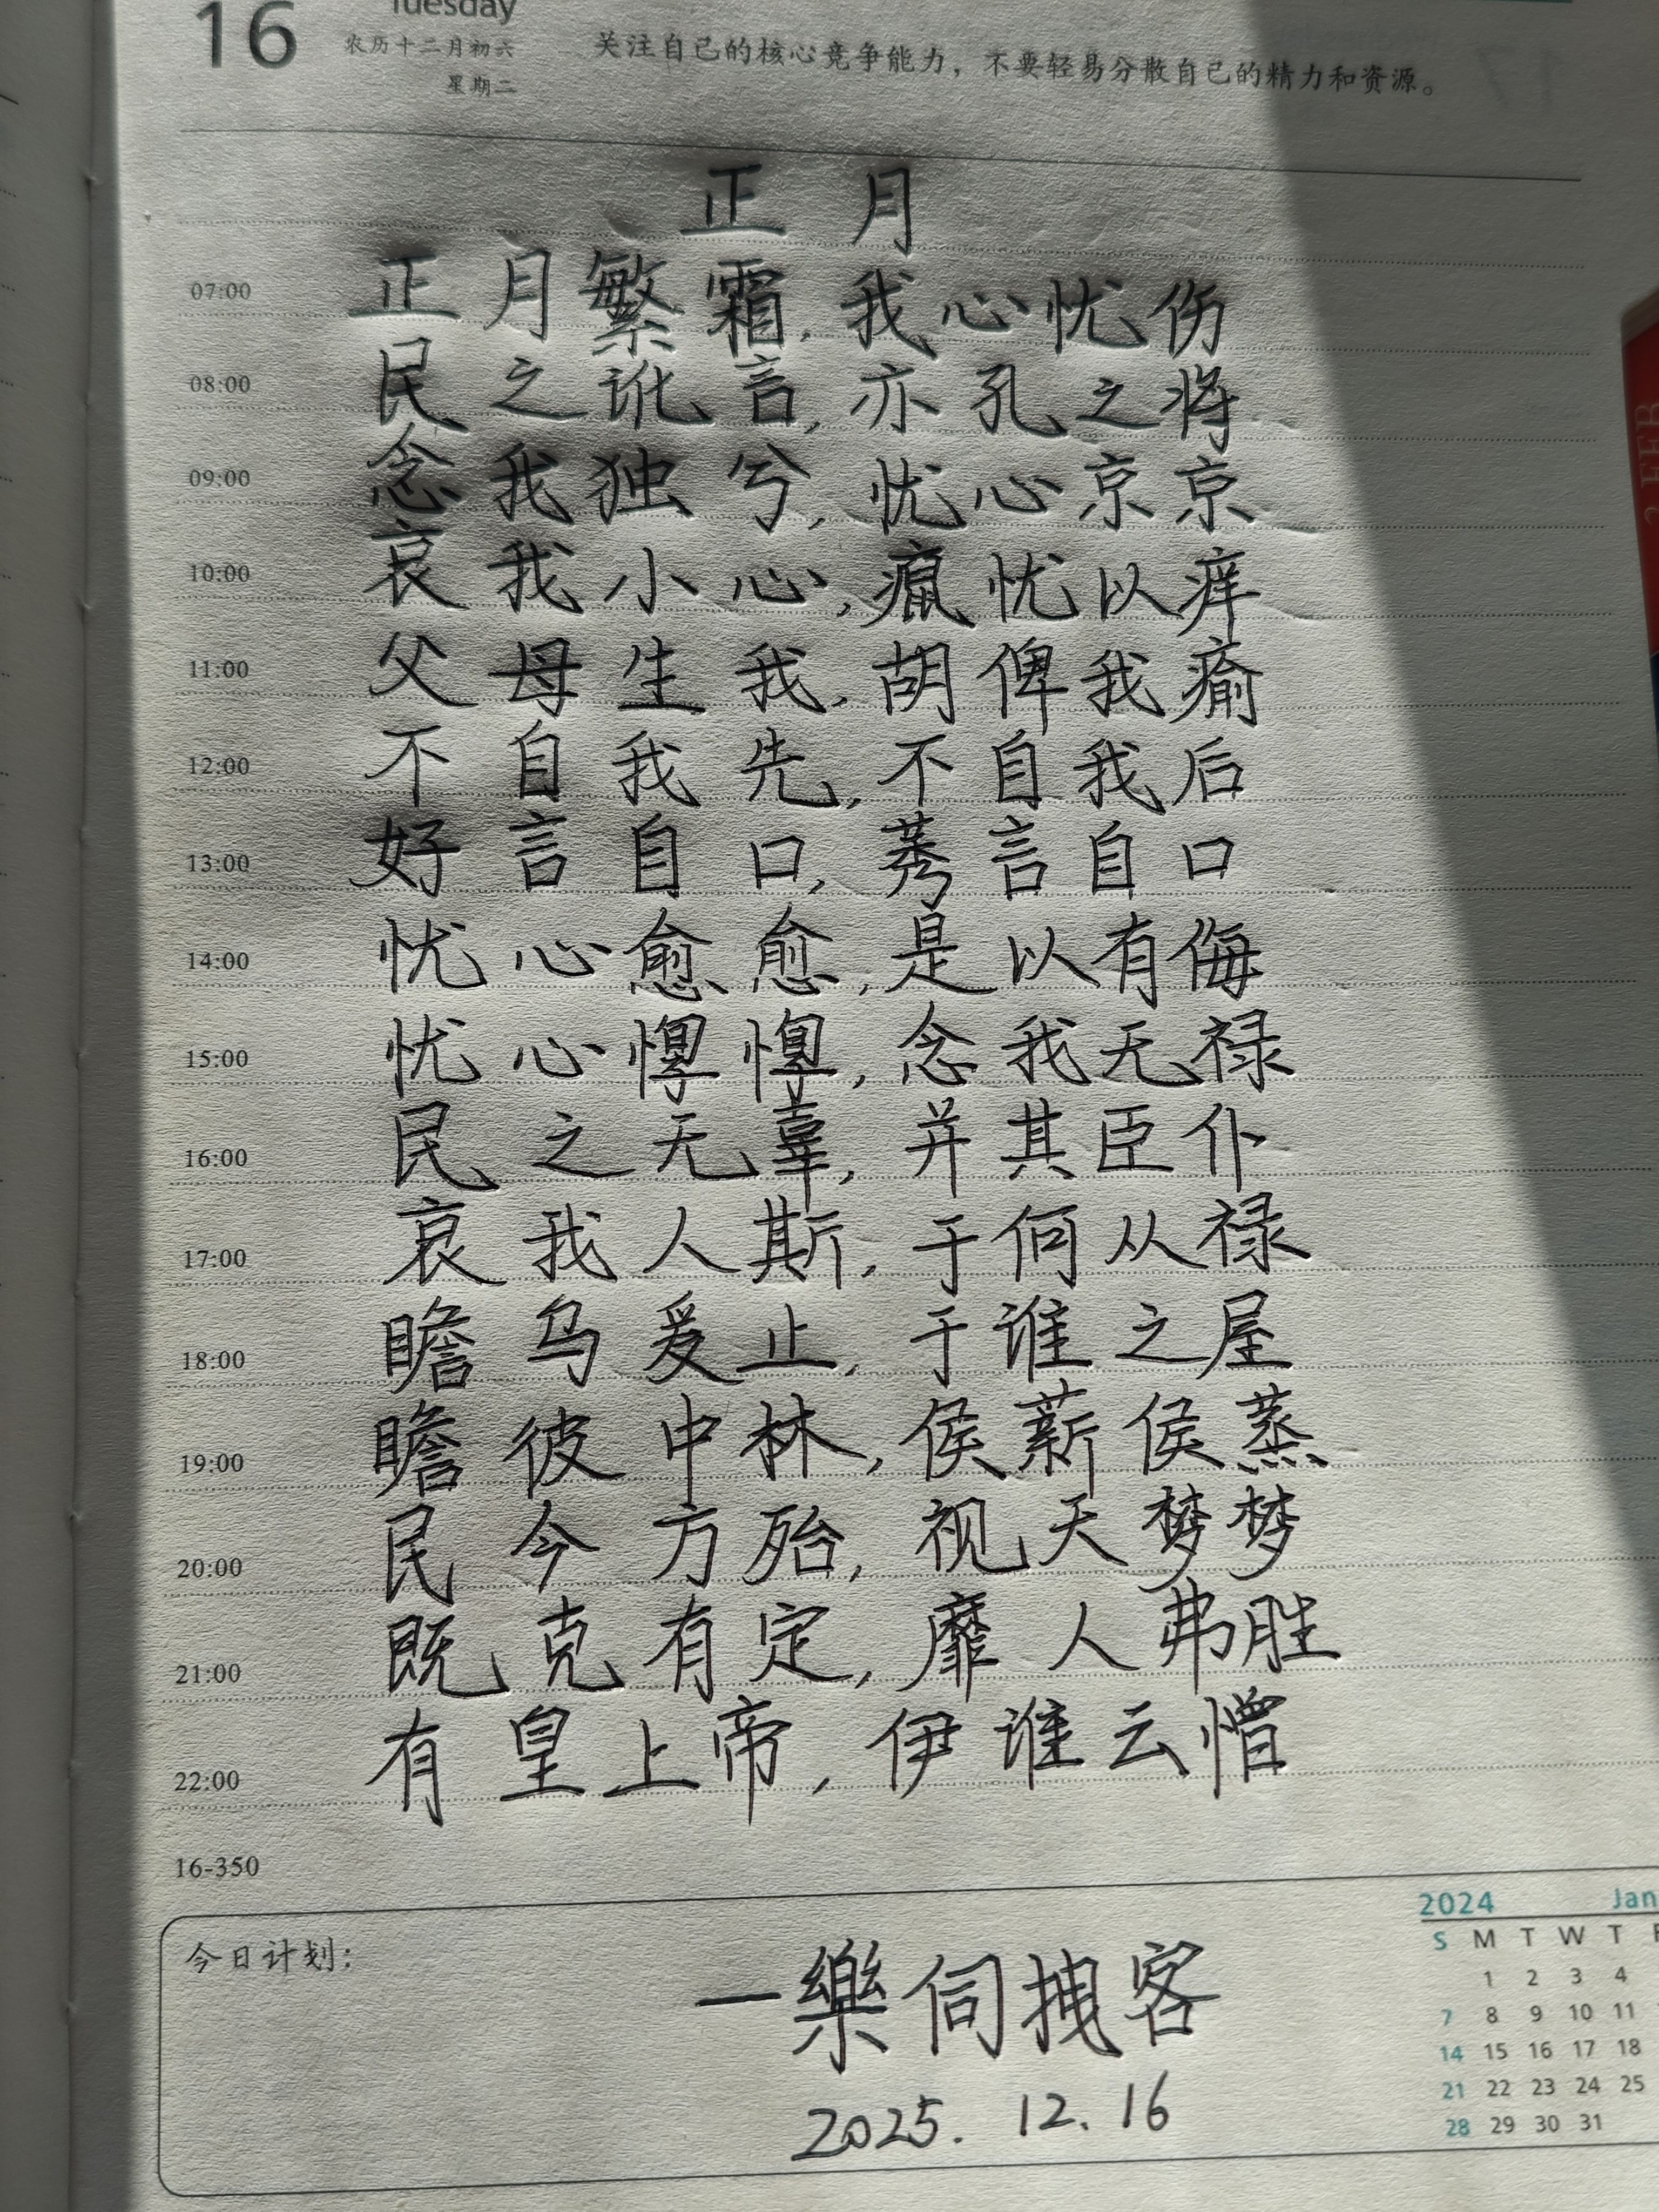 16
Tuesday
农历十二月初六
星期二
关注自己的核心竞争能力，不要轻易分散自己的精力和资源。
正月
07:00 正月繁霜，我心忧伤
08:00 民之讹言，亦孔之将
09:00 念我独兮，忧心京京
10:00 哀我小心，癙忧以痒
11:00 父母生我，胡俾我瘉
12:00 不自我先，不自我后
13:00 好言自口，莠言自口
14:00 忧心愈愈，是以有侮
15:00 忧心惸惸，念我无禄
16:00 民之无辜，并其臣仆
17:00 哀我人斯，于何从禄
18:00 瞻乌爰止，于谁之屋
19:00 瞻彼中林，侯薪侯蒸
20:00 民今方殆，视天梦梦
21:00 既克有定，靡人弗胜
22:00 有皇上帝，伊谁云憎
16-350
今日计划：
一樂伺拽客
2025.12.16
2024 Jan
S M T W T F
1 2 3 4
7 8 9 10 11
14 15 16 17 18
21 22 23 24 25
28 29 30 31